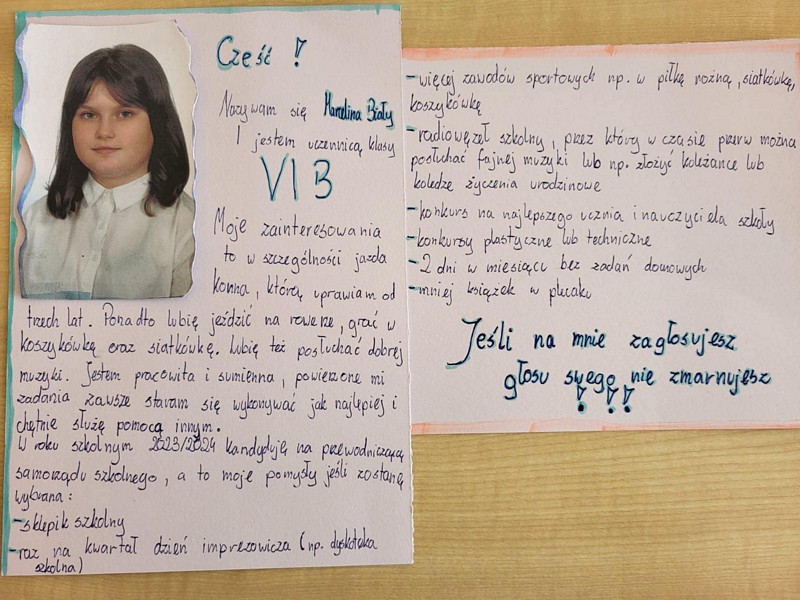 Cześć !
Nazywam się Marcelina Biały
I jestem uczennicą klasy
VI B
Moje zainteresowania
to w szczególności jazda
konna, którą uprawiam od
trzech lat. Ponadto lubię jeździć na rowerze, grać w
koszykówkę oraz siatkówkę. Lubię też posłuchać dobrej
muzyki. Jestem pracowita i sumienna, powierzone mi
zadania zawsze staram się wykonywać jak najlepiej i
chętnie służę pomocą innym.
W roku szkolnym 2023/2024 kandyduję na przewodniczącą
samorządu szkolnego, a to moje pomysły jeśli zostanę
wybrana:
-sklepik szkolny
-raz na kwartał dzień imprezowicza (np. dyskoteka
szkolna)
-więcej zawodów sportowych np. w piłkę nożną, siatkówkę,
koszykówkę
-radiowęzeł szkolny, przez który w czasie przerw można
posłuchać fajnej muzyki lub np. złożyć koleżance lub
koledze życzenia urodzinowe
-konkurs na najlepszego ucznia i nauczyciela szkoły
-konkursy plastyczne lub techniczne
-2 dni w miesiącu bez zadań domowych
-mniej książek w plecaku
Jeśli na mnie zagłosujesz
głosu swego nie zmarnujesz
! ! !